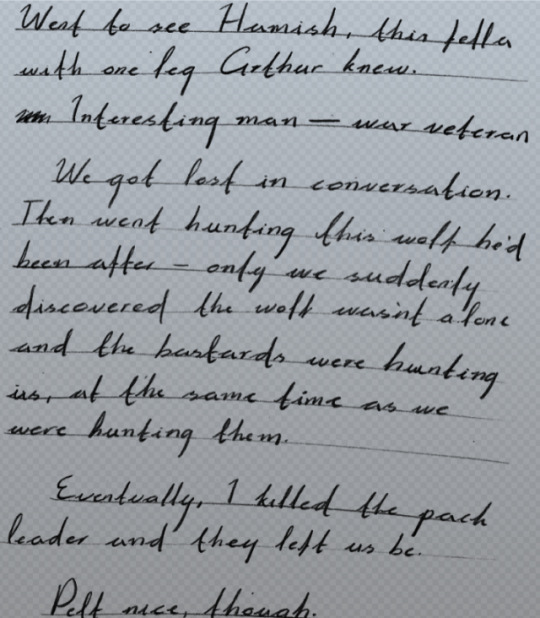 Went to see Hamish, this fella
with one leg Arthur knew.
Interesting man — war veteran
We got lost in conversation.
Then went hunting this wolf he'd
been after – only we suddenly
discovered the wolf wasn't alone
and the bastards were hunting
us, at the same time as we
were hunting them.
Eventually, I killed the pack
leader and they left us be.
Pelt nice, though.